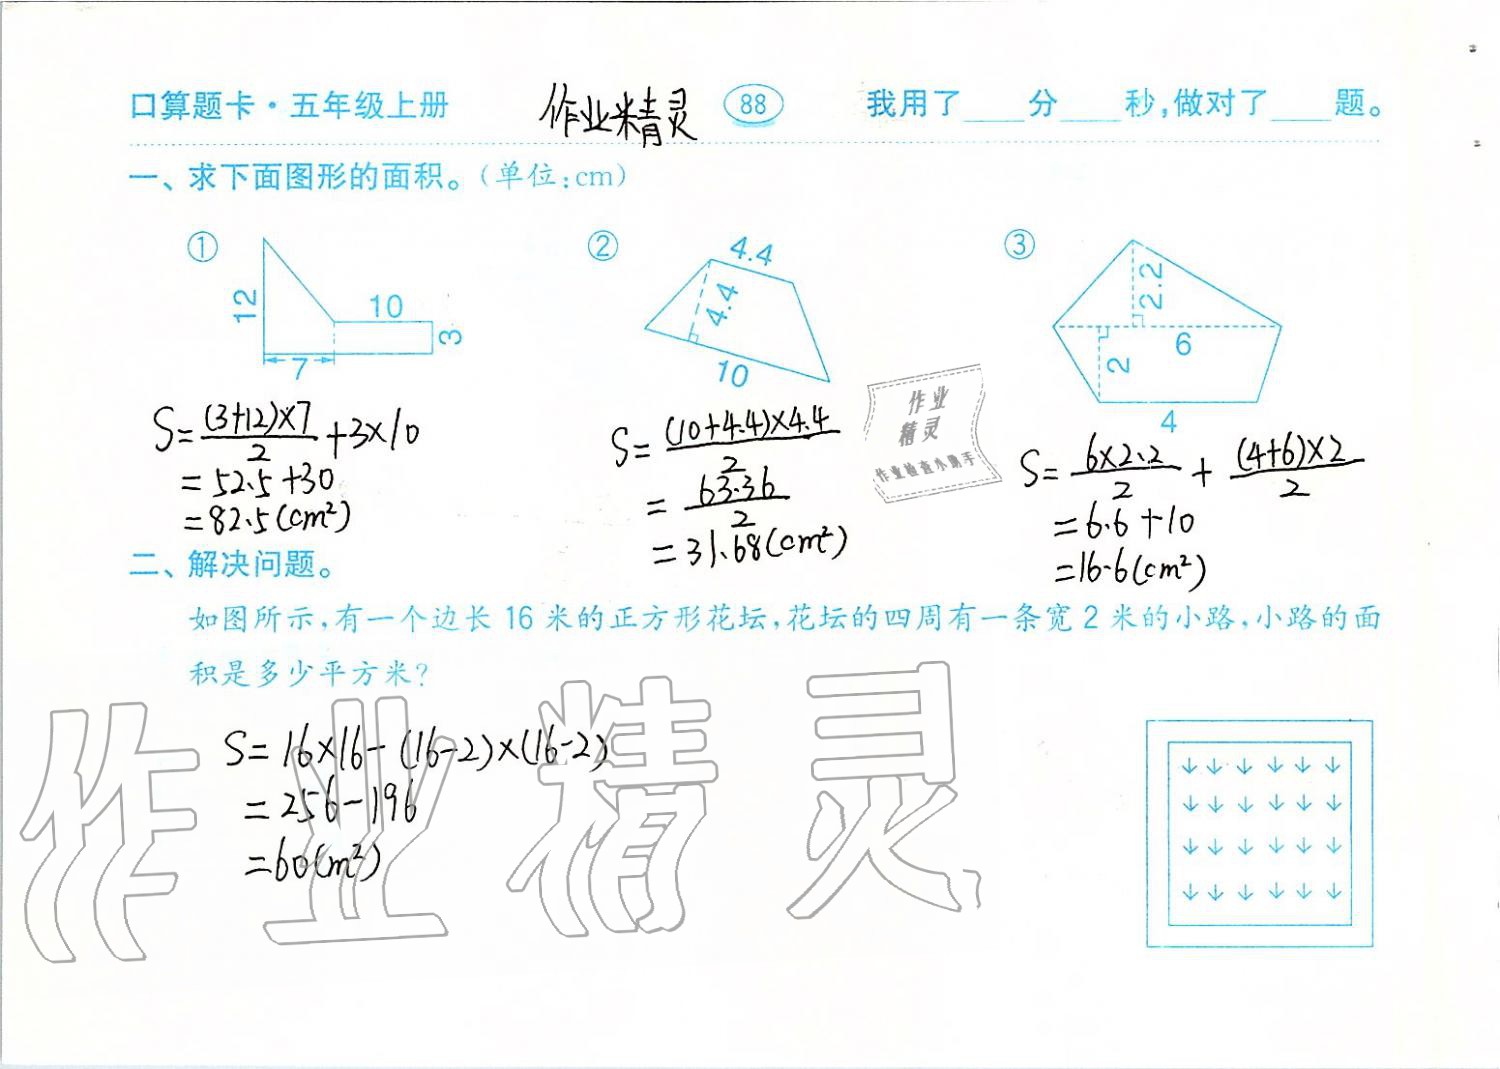 口算题卡·五年级上册 作业精灵 88 我用了____分____秒,做对了____题。
一、求下面图形的面积。(单位:cm)
① ② ③
12 10 3 7
4.4 4.4 10
2.2 6 2 4
作业
精灵
作业检查小助手
S=(3+12)×7/2+3×10
=52.5+30
=82.5(cm²)
S=(10+4.4)×4.4/2
=63.36/2
=31.68(cm²)
S=6×2.2/2+(4+6)×2/2
=6.6+10
=16.6(cm²)
二、解决问题。
如图所示,有一个边长16米的正方形花坛,花坛的四周有一条宽2米的小路,小路的面
积是多少平方米?
S=16×16-(16-2)×(16-2)
=256-196
=60(m²)
作业精灵